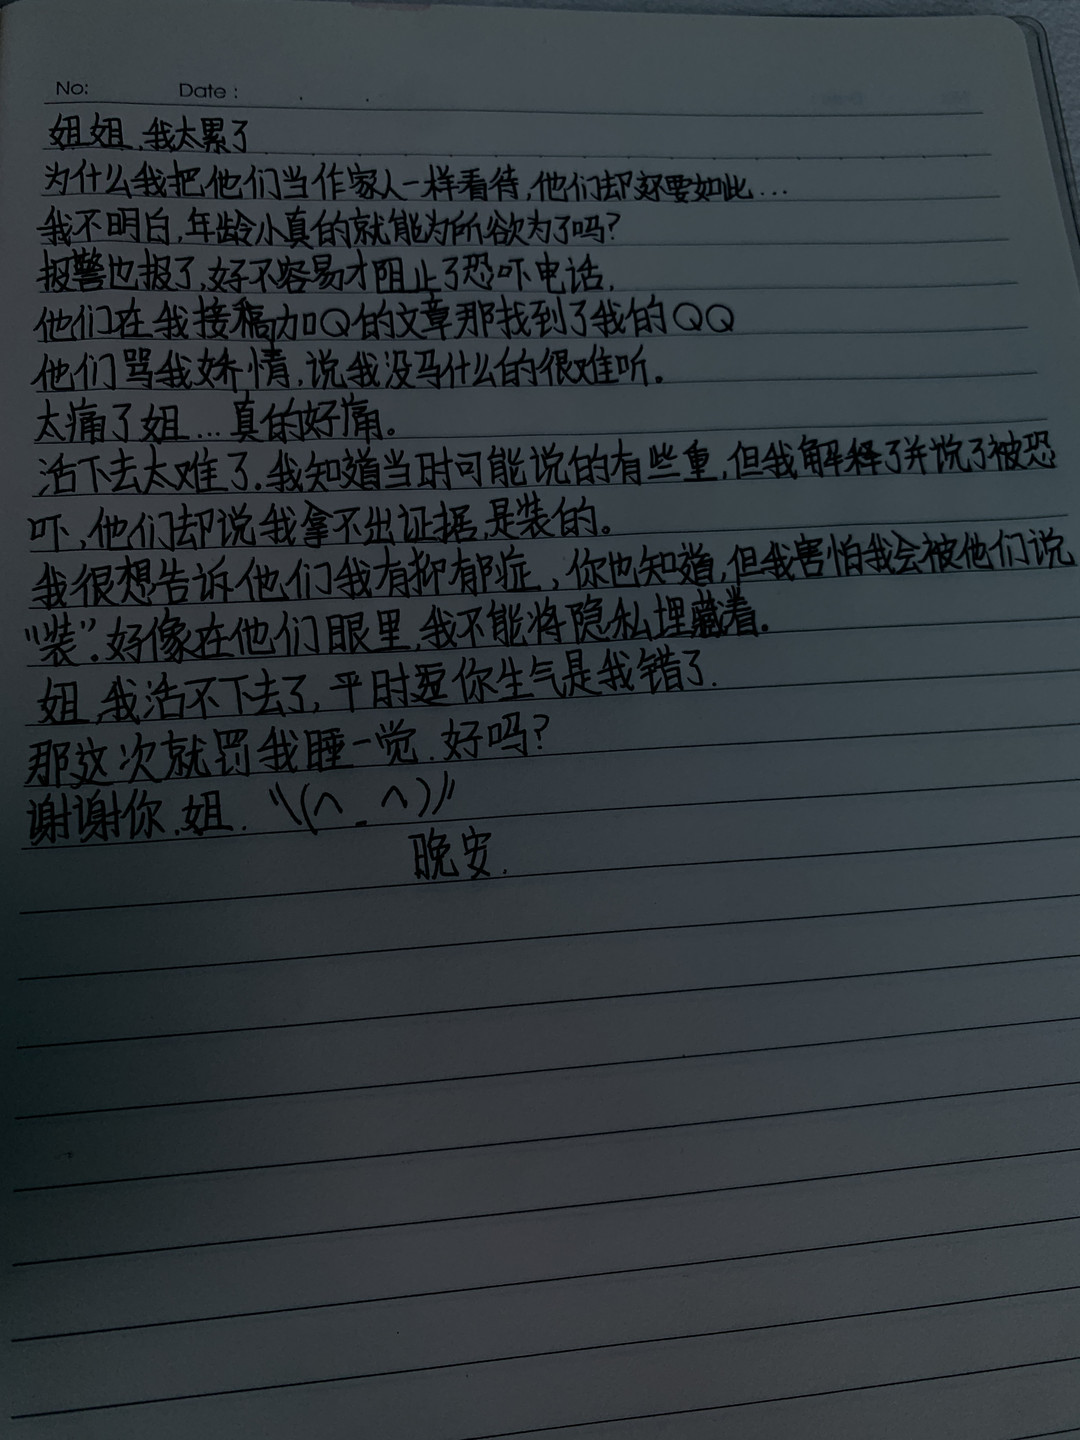 No: Date:
姐姐,我太累了
为什么我把他们当作家人一样看待,他们却要如此...
我不明白,年龄小真的就能为所欲为了吗?
报警也报了,好不容易才阻止了恐吓电话,
他们在我接稿加Q的文章那找到了我的QQ
他们骂我矫情,说我没马什么的很难听。
太痛了姐...真的好痛。
活下去太难了.我知道当时可能说的有些重,但我解释了并说了被恐
吓,他们却说我拿不出证据,是装的。
我很想告诉他们我有抑郁症,你也知道,但我害怕我会被他们说
“装”.好像在他们眼里,我不能将隐私埋藏着.
姐,我活不下去了,平时惹你生气是我错了.
那这次就罚我睡一觉.好吗?
谢谢你.姐. \\(^ - ^)//
晚安.